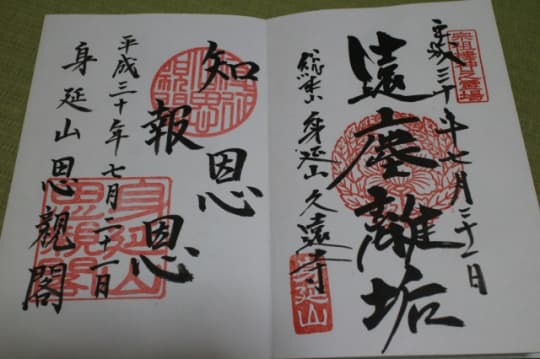 平成三十年七月二十一日
遠塵離垢
総本山 身延山久遠寺
身延山
知恩
報恩
平成三十年七月二十一日
身延山思親閣
身延山
思親閣